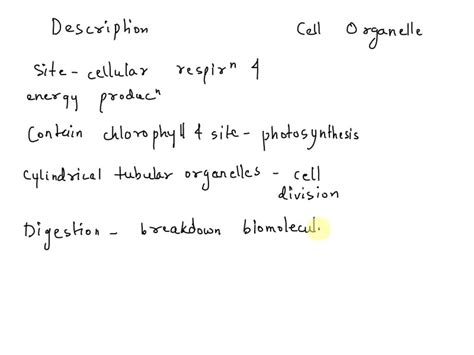 Description Cell Organelle
Site - cellular respirⁿ &
energy producⁿ
Contain chlorophyll & site - photosynthesis
Cylindrical tubular organelles - cell
division
Digestion - breakdown biomolecul